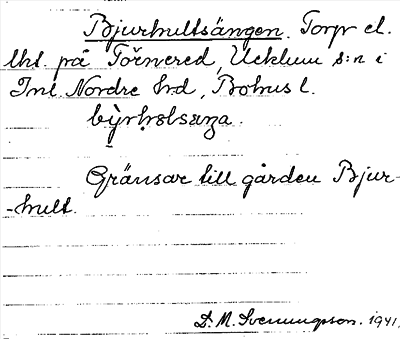 Bjurhultsängen. Torp el.
lht. på Törnered, Ucklum s:n i
Inl. Nordre hrd, Bohus l.
by̌rhọlsæŋa.
Gränsar till gården Bjur-
-hult.
D. M. Svenungsson. 1941.